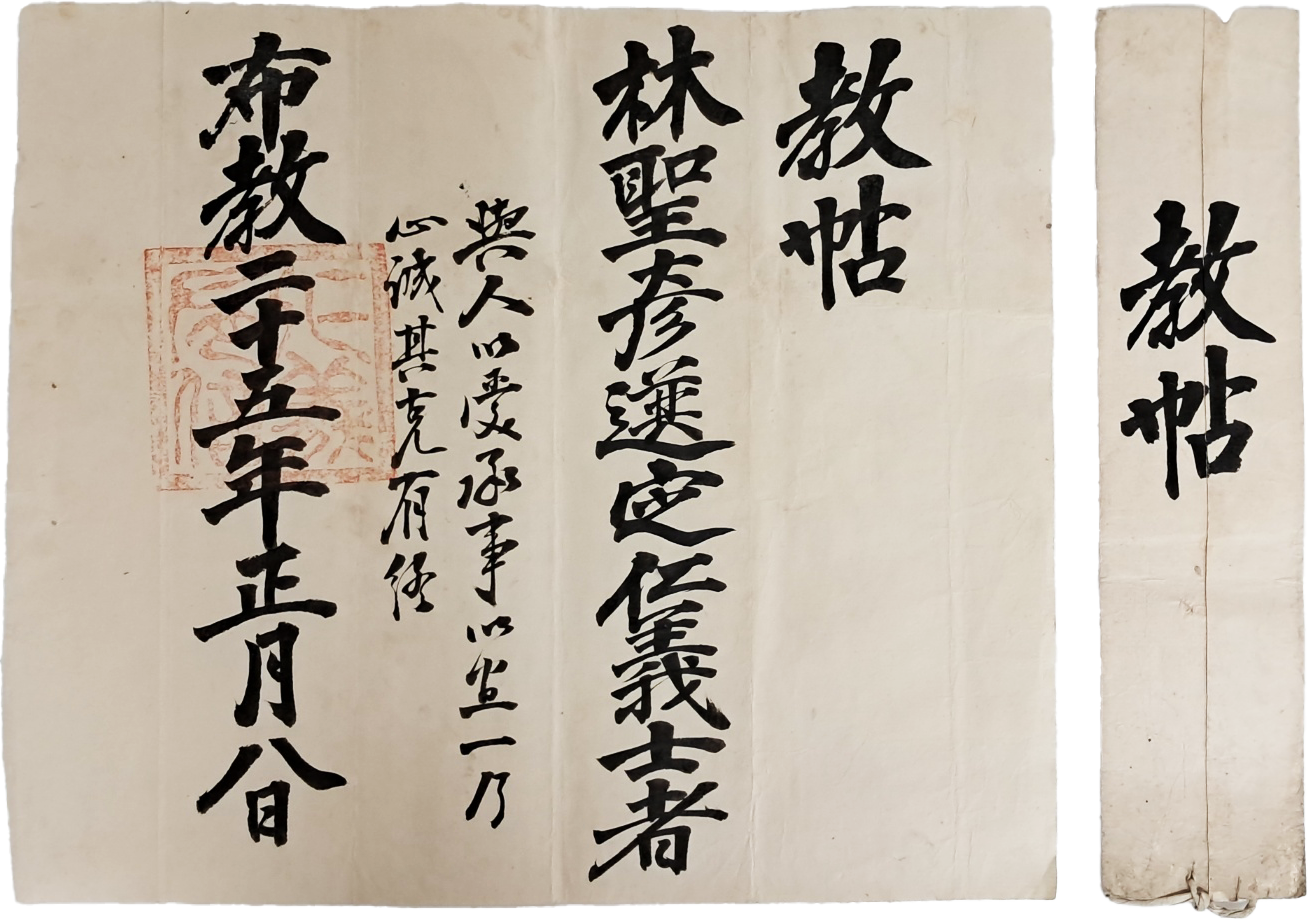 教帖
教帖
林聖彦選定仁義士者
與人以愛承事以一乃
心誠其克有終
布教二十五年正月八日